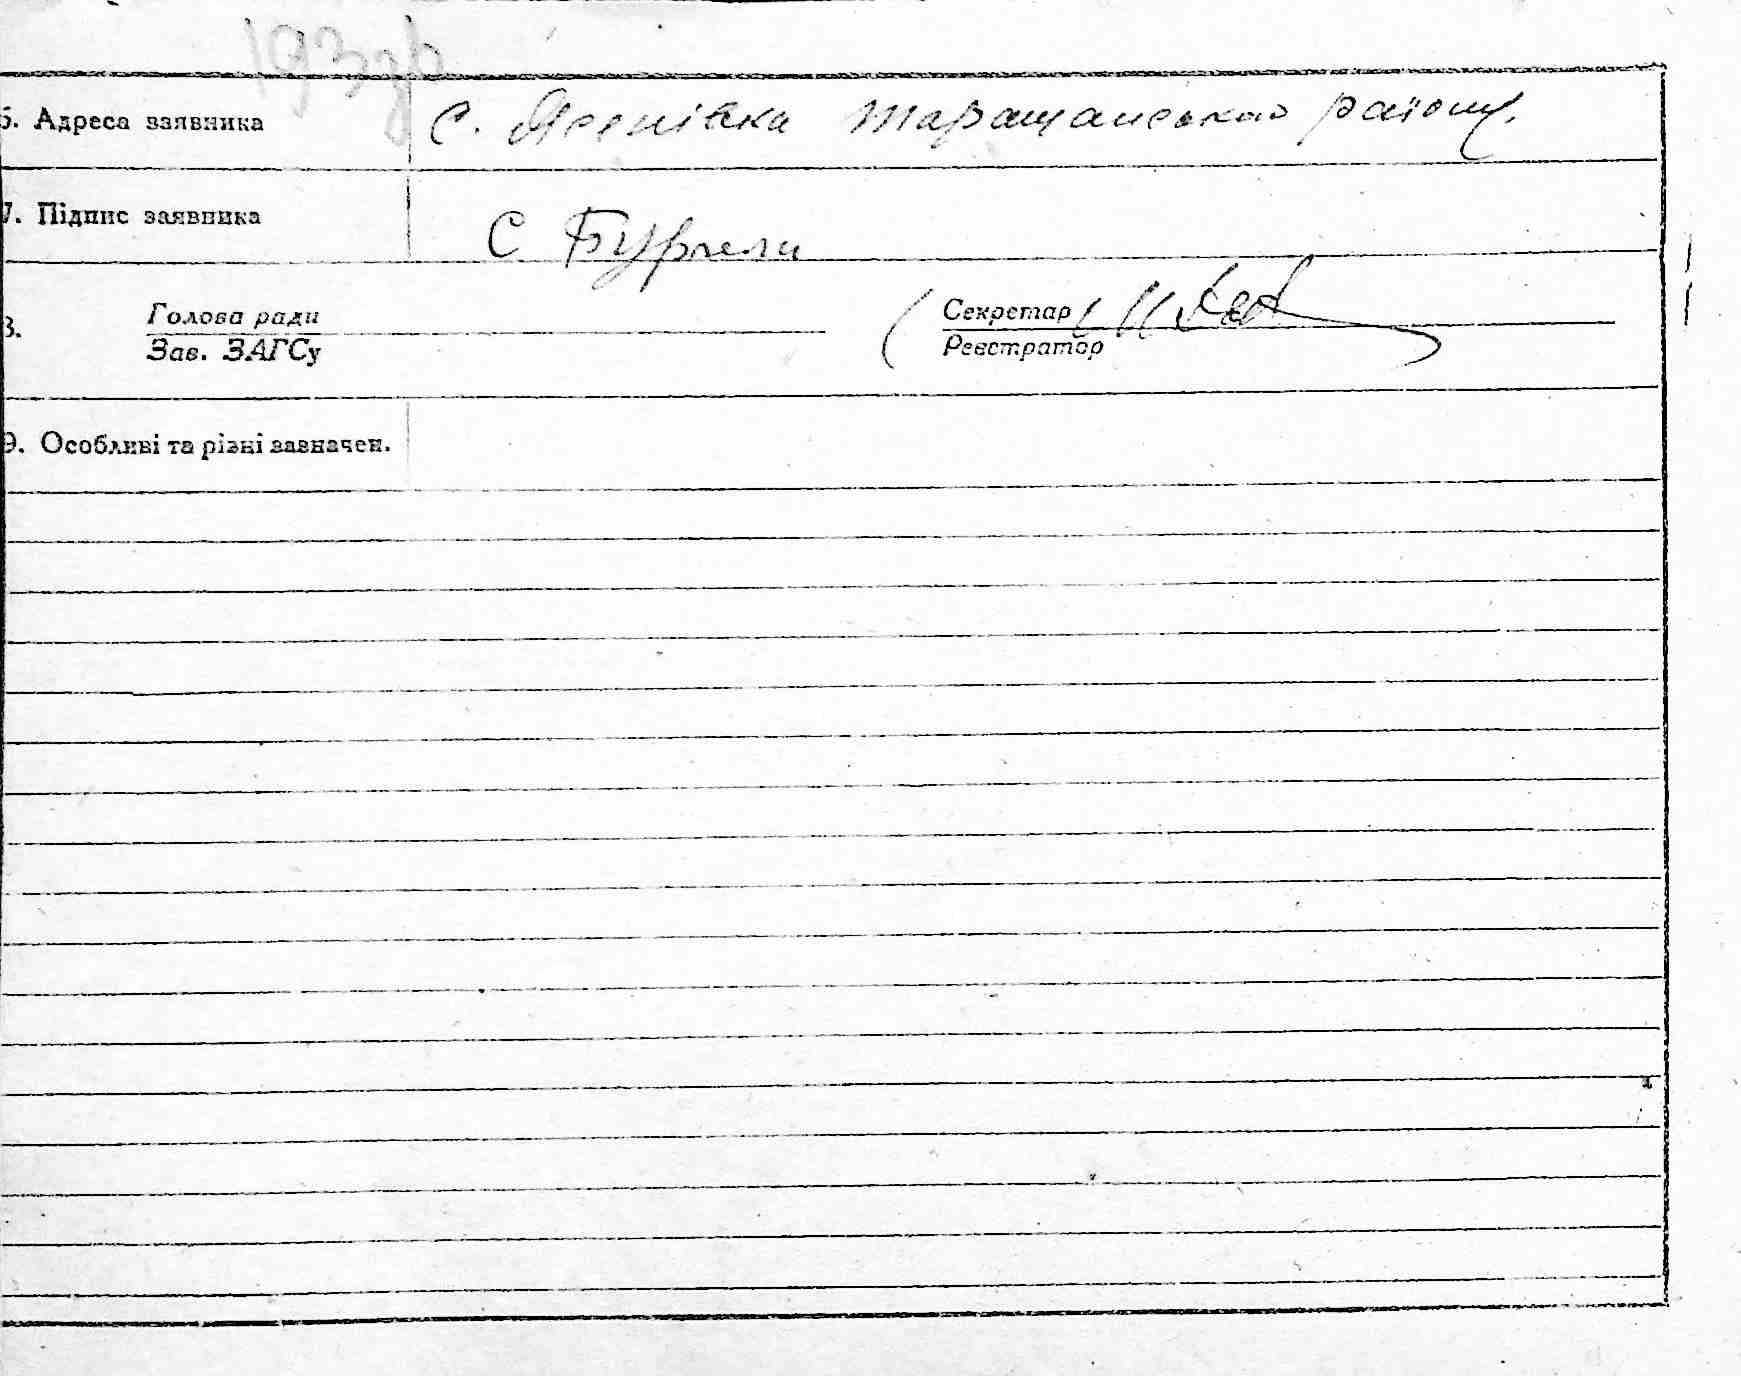 193 р
6. Адреса заявника с. Ясенівка Таращанського району.
7. Підпис заявника С
8. Голова ради Секретар
Зав. ЗАГСу Реєстратор
9. Особливі та різні зазначен.